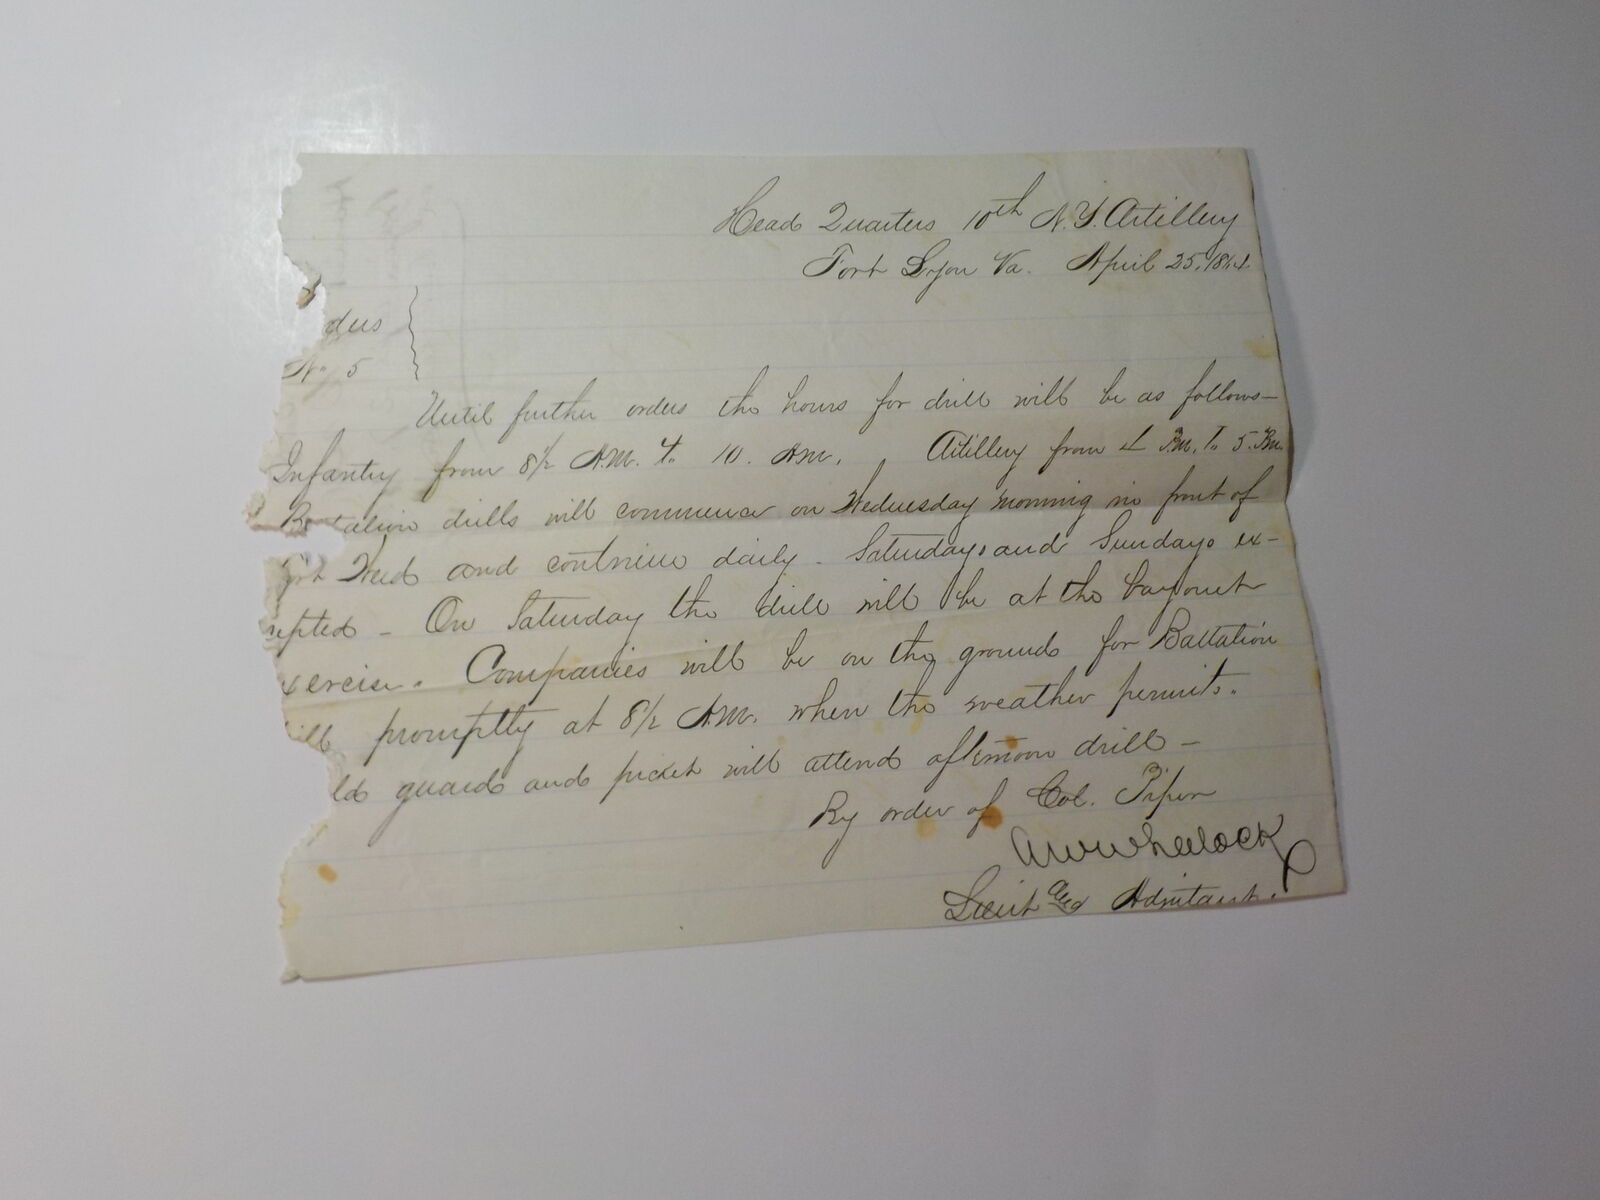 Head Quarters 10th N.Y. Artillery
Fort Lyon Va. April 25, 1864.
ders
No. 5
Until further orders the hours for drill will be as follows—
Infantry from 8½ A.M. to 10. A.M. Artillery from 4 P.M. to 5. P.M.
Battalion drills will commence on Wednesday morning in front of
Fort Weed and continue daily. Saturdays and Sundays ex-
cepted — On Saturday the drill will be at the bayonet
xercise. Companies will be on the grounds for Battalion
ill promptly at 8½ A.M. when the weather permits.
ld guard and picket will attend afternoon drill —
By order of Col. Piper
A W Wheelock
Lieut and Adjutant.